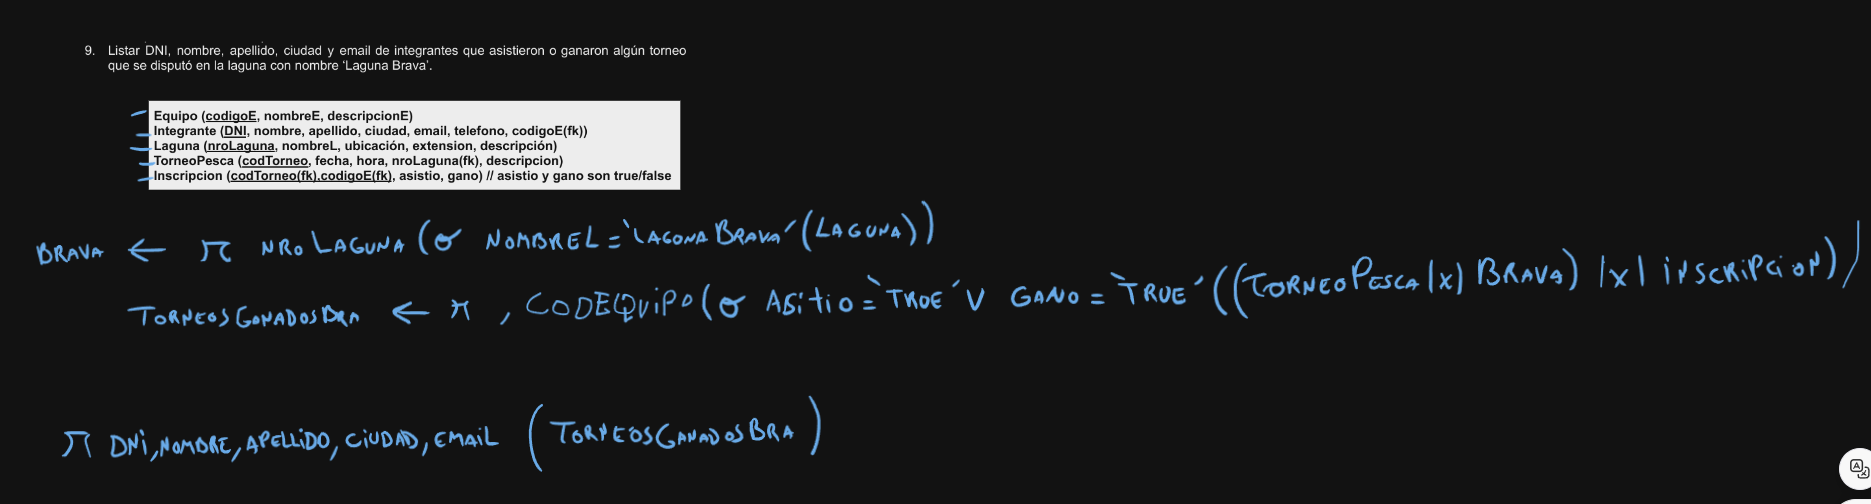 9. Listar DNI, nombre, apellido, ciudad y email de integrantes que asistieron o ganaron algún torneo
que se disputó en la laguna con nombre ‘Laguna Brava’.
Equipo (codigoE, nombreE, descripcionE)
Integrante (DNI, nombre, apellido, ciudad, email, telefono, codigoE(fk))
Laguna (nroLaguna, nombreL, ubicación, extension, descripción)
TorneoPesca (codTorneo, fecha, hora, nroLaguna(fk), descripcion)
Inscripcion (codTorneo(fk),codigoE(fk), asistio, gano) // asistio y gano son true/false
BRAVA ← π NRO LAGUNA (σ NOMBREL = 'LAGUNA BRAVA' (LAGUNA))
TORNEOSGANADOSBRA ← π , CODEQUIPO (σ ASITIO = 'TRUE' V GANO = 'TRUE' ((TORNEOPESCA |X| BRAVA) |X| INSCRIPCION))
π DNI, NOMBRE, APELLIDO, CIUDAD, EMAIL (TORNEOSGANADOSBRA)